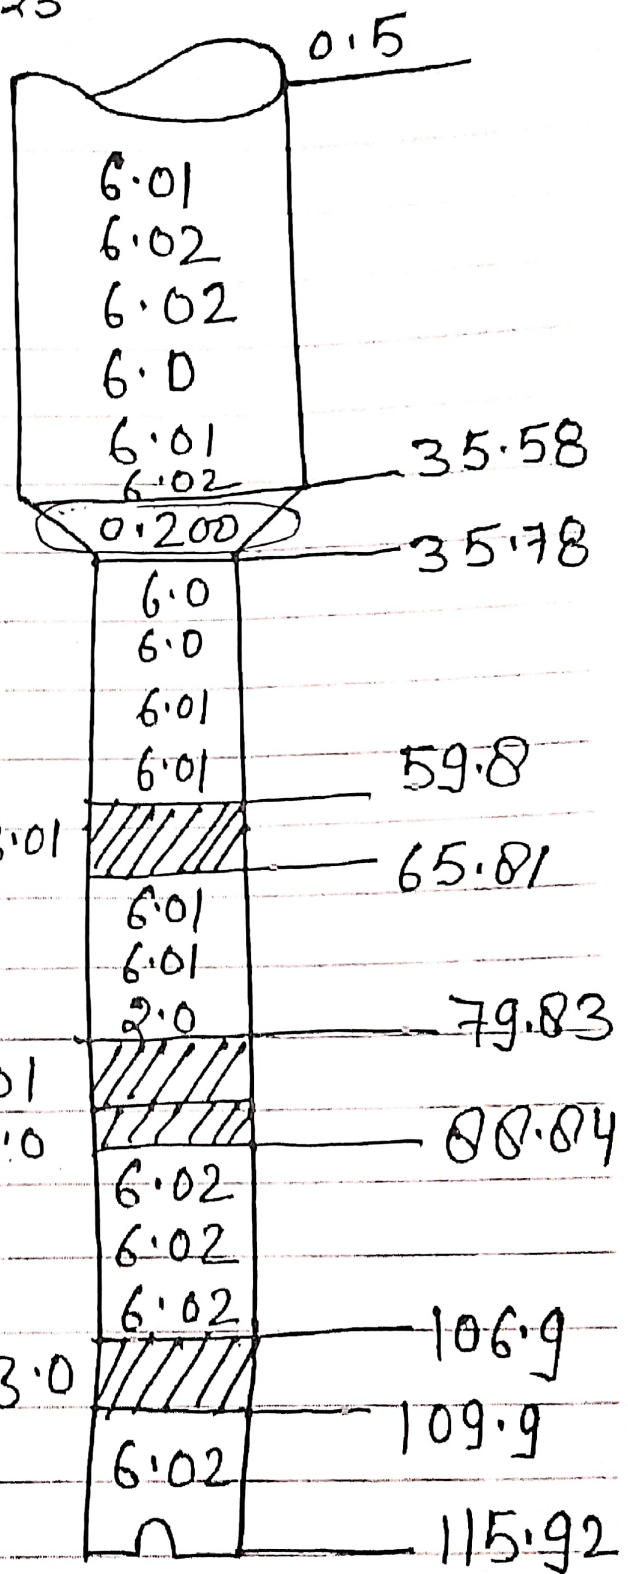 0.5
6.01
6.02
6.02
6.0
6.01
6.02
35.58
0.200
35.78
6.0
6.0
6.01
6.01
59.8
65.81
6.01
6.01
2.0
79.83
88.84
6.02
6.02
6.02
106.9
3.0
109.9
6.02
115.92